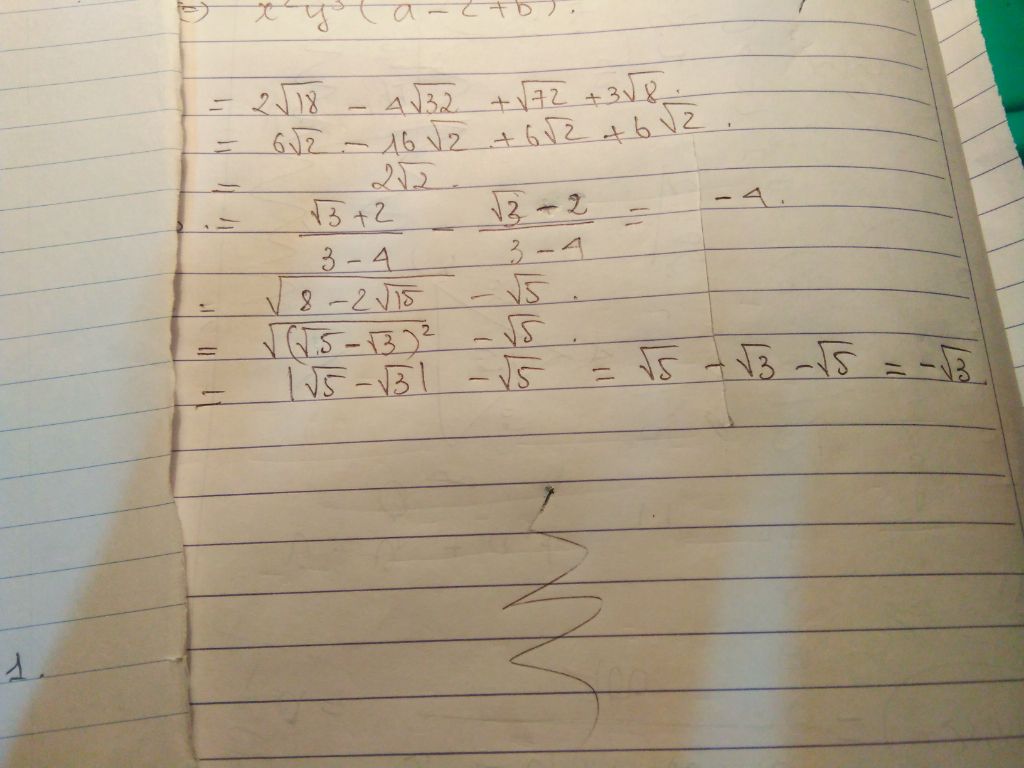 =) x² y³ (a - 2 + b).
= 2√18 - 4√32 + √72 + 3√8.
= 6√2 - 16√2 + 6√2 + 6√2.
= 2√2.
.= (√3 + 2)/(3 - 4) - (√3 - 2)/(3 - 4) = - 4.
= √(8 - 2√15) - √5.
= √((√5 - √3)²) - √5.
= |√5 - √3| - √5 = √5 - √3 - √5 = -√3
1.